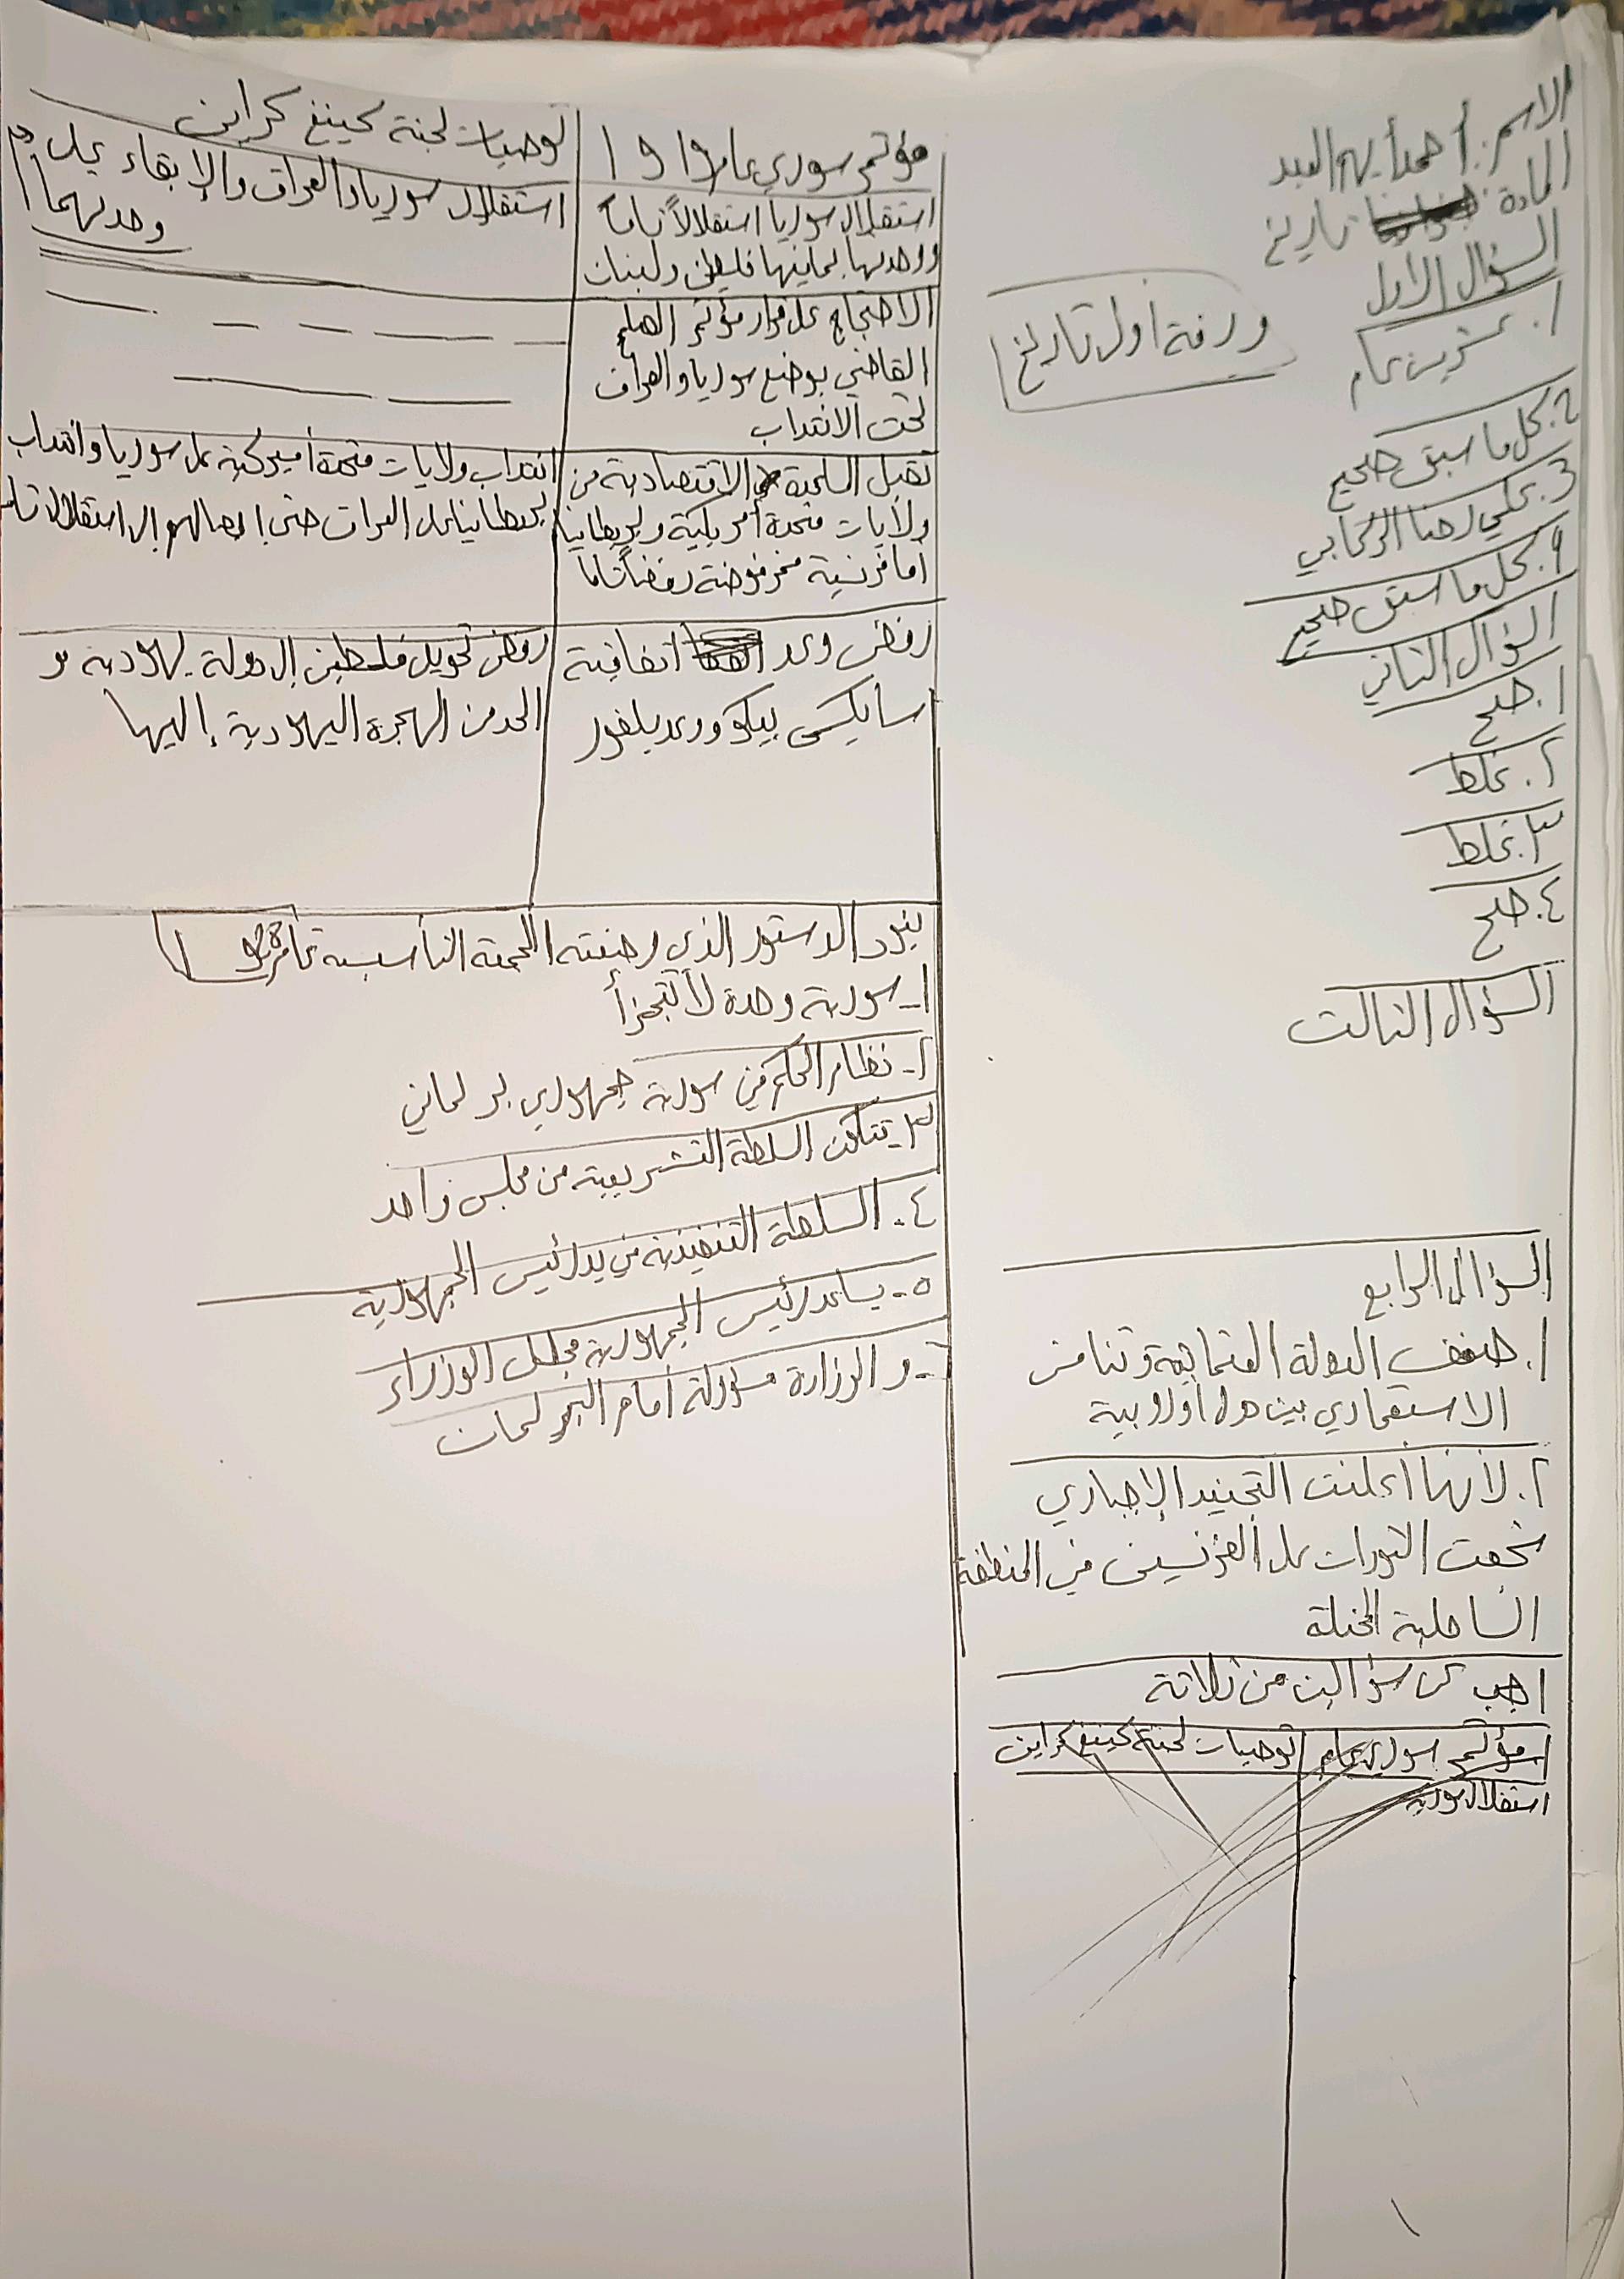 الاسم: أحمد أيهم العبد
المادة تاريخ
السؤال الأول
١. عشرين عام
٢. كل ما سبق صحيح
٣. علي رضا الركابي
٤. كل ما سبق صحيح
السؤال الثاني
١. صح
٢. غلط
٣. غلط
٤. صح
السؤال الثالث
ورقة اول تاريخ
السؤال الرابع
١. ضعف الدولة العثمانية وتنافس
الاستعماري بين دول أوروبية
٢. لأنها اعلنت التجنيد الإجباري
شجعت الثورات على الفرنسيين في المنطقة
الساحلية المحتلة
اجب عن سؤالين من ثلاثة
مؤتمر سوري عام توصيات لجنة كينغ كراين
استقلال سورية
مؤتمر سوري عام ١٩١٩
توصيات لجنة كينغ كراين
استقلال سوريا استقلالاً تاماً
ووحدتها بمافيها فلسطين ولبنان
استقلال سوريا والعراق والإبقاء على
وحدتهما
الاحتجاج على قرار مؤتمر الصلح
القاضي بوضع سوريا والعراق
تحت الانتداب
تقبل المساعدة الاقتصادية من
ولايات متحدة أمريكية وبريطانيا
أما فرنسية فمرفوضة رفضاً تاماً
انتداب ولايات متحدة أميركية على سوريا وانتداب
بريطانيا على العراق حتى إيصالهم إلى استقلال تام
رفض وعد اتفاقية
سايكس بيكو ووعد بلفور
رفض تحويل فلسطين إلى دولة يهودية و
الحد من الهجرة اليهودية إليها
بنود الدستور الذي وضعته الجمعية التأسيسية عام
١- سورية وحدة لا تتجزأ
٢- نظام الحكم في سورية جمهوري برلماني
٣- تتألف السلطة التشريعية من مجلس واحد
٤. السلطة التنفيذية في يد رئيس الجمهورية
٥- يساعد رئيس الجمهورية مجلس الوزراء
٦- و الوزارة مسؤولة أمام البرلمان